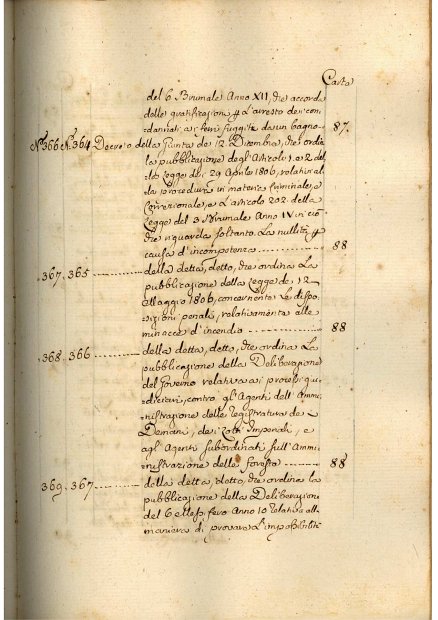 Carta
del 6 Brumale Anno XII, che accorda
delle gratificazioni p l'arresto dei con-
dannati ai ferri fuggiti da un bagno- 87.
N.º 366 N.º 364 Decreto della Giunta de' 12 Dicembre, che ordina
la pubblicazione degl'Articoli 1. e 2. del
la Legge dei 29 Aprile 1806, relativi al
la procedura in materia Criminale, e
Correzionale, e l'articolo 202. della
Legge del 3 Brumale Anno IV in ciò
che riguarda soltanto la nullità p
causa d'incompetenza 88
367. 365 della detta, detto, che ordina la
pubblicazione della Legge de' 12
Maggio 1806, concernente le dispo-
sizioni penali, relativamente alle
minacce d'incendio 88
368. 366 della detta, detto, che ordina la
pubblicazione della Deliberazione
del Governo relativa ai processi giu-
diciari, contro gl'Agenti dell'Ammi
nistrazione delle Registratura de'
Demani, dei Lotti Imperiali, e
agl'Agenti subordinati sull'Ammi
nistrazione delle foreste 88
369. 367 della detta, detto, che ordina la
pubblicazione della Deliberazione
del 6 Messifero Anno 10 relativa alla
maniera di provare l'impossibilità